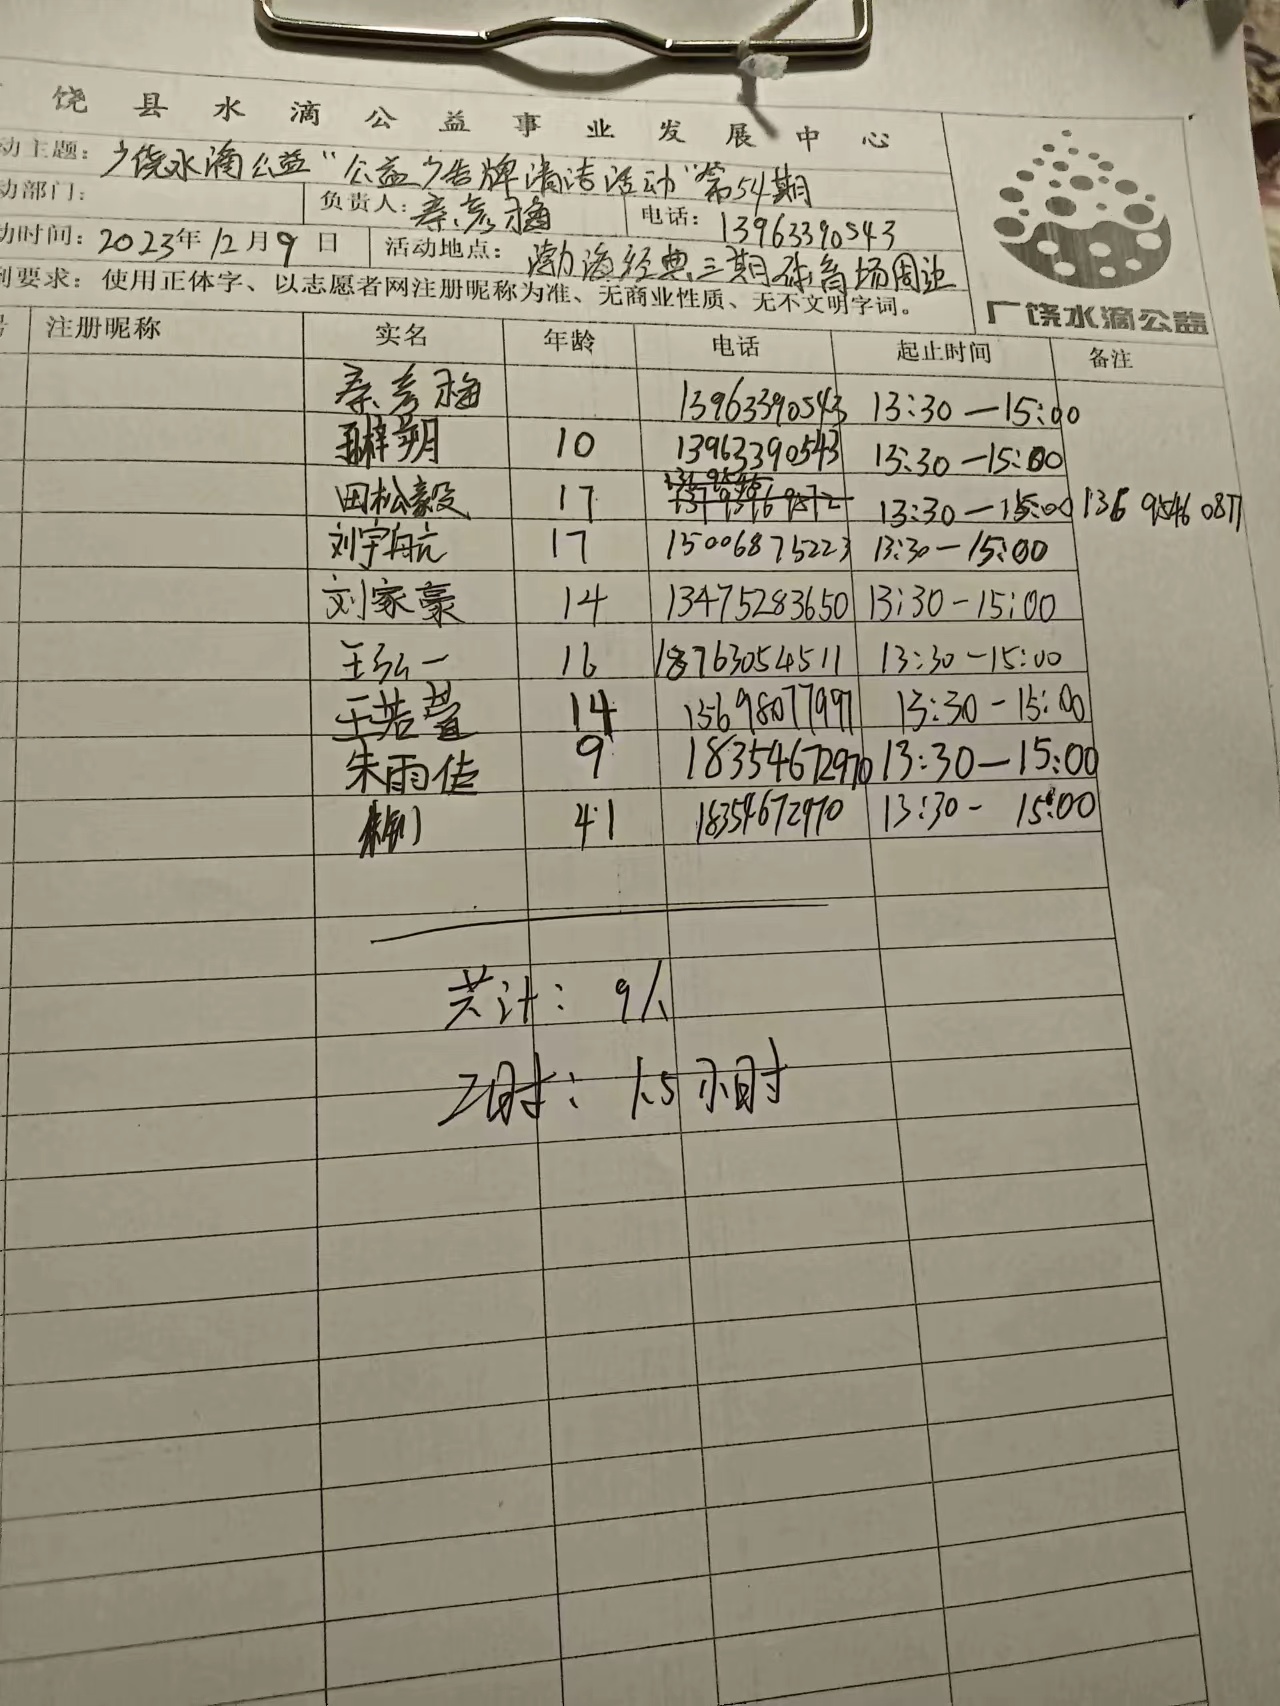 饶县水滴公益事业发展中心
动主题：广饶水滴公益“公益广告牌清洁活动”第54期
动部门： 负责人：秦彦梅 电话：13963390543
动时间：2023年12月9日 活动地点：渤海经典三期体育场周边
到要求：使用正体字、以志愿者网注册昵称为准、无商业性质、无不文明字词。
广饶水滴公益
号 注册昵称 实名 年龄 电话 起止时间 备注
秦彦梅 13963390543 13:30—15:00
梓朔 10 13963390543 13:30—15:00
田松毅 17 13:30—15:00 136 9546 0871
刘宇航 17 15006875223 13:30—15:00
刘家豪 14 13475283650 13:30-15:00
王弘一 16 18763054511 13:30-15:00
王若萱 14 13698077997 13:30-15:00
朱雨佳 9 18354672970 13:30—15:00
41 18354672970 13:30- 15:00
共计：9人
工时：1.5小时